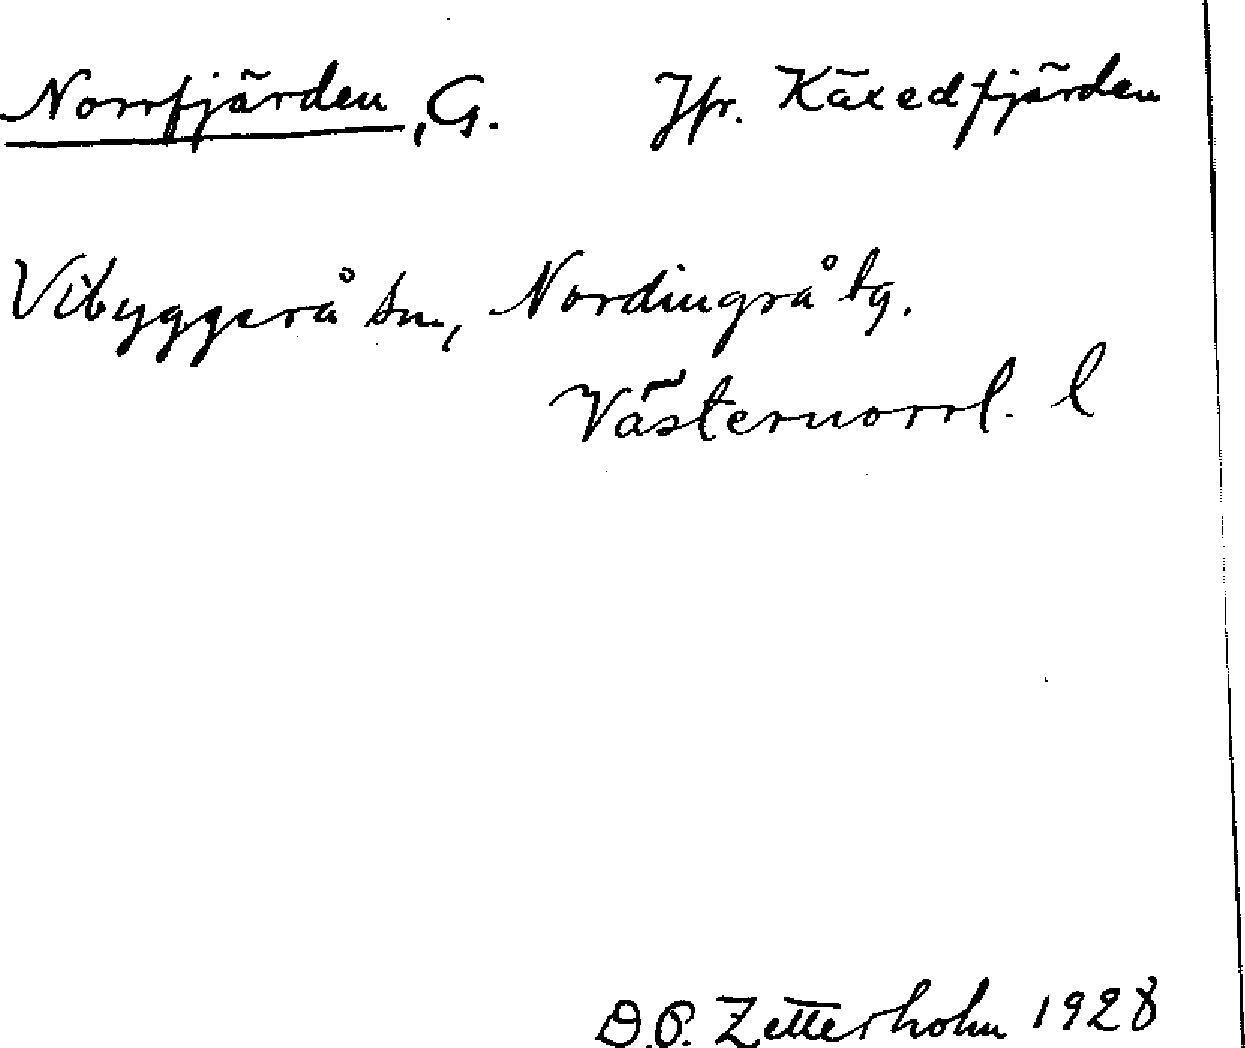 Norrfjärden, G. Jfr. Käxedfjärden
Vibyggerå sn, Nordingrå tg.
Västernorrl. l
D.O. Zetterholm 1928